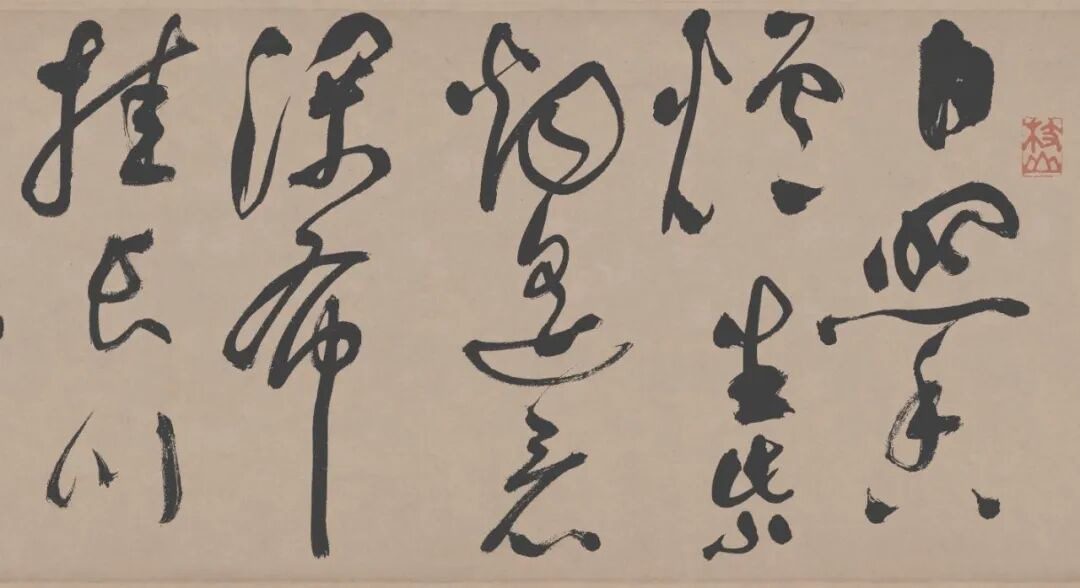 枝山
日照香
爐生紫
烟遙看
瀑布
挂長川